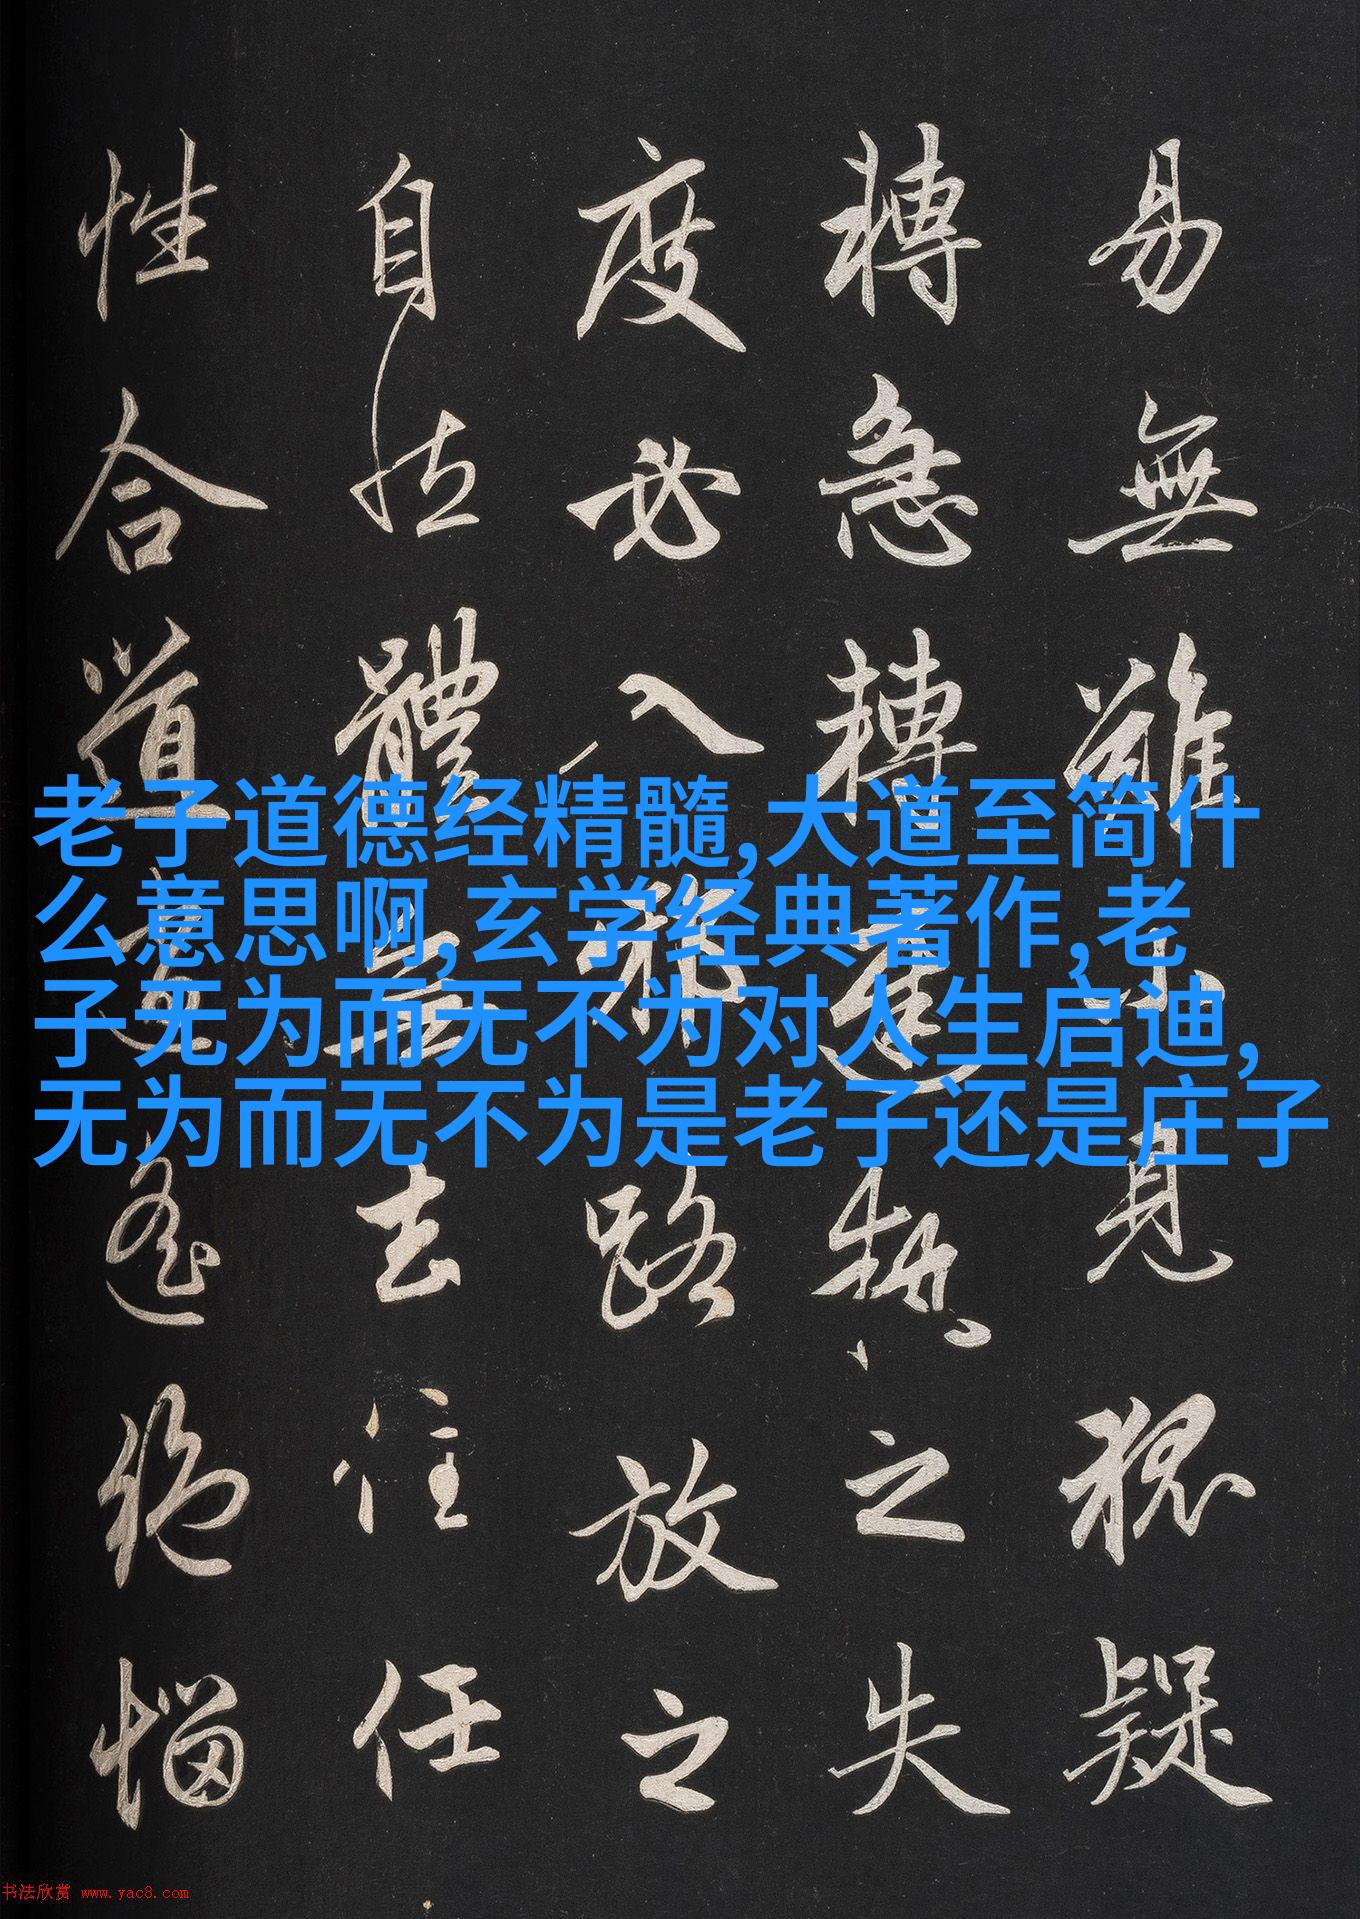 易無難小見狐疑
轉急轉遲執之失
度必入邪路放之
自然體無去住任
性合道逍遙絕惱
老子道德经精髓,大道至简什
么意思啊,玄学经典著作,老
子无为而无不为对人生启迪,
无为而无不为是老子还是庄子
书法欣赏 www.yac8.com